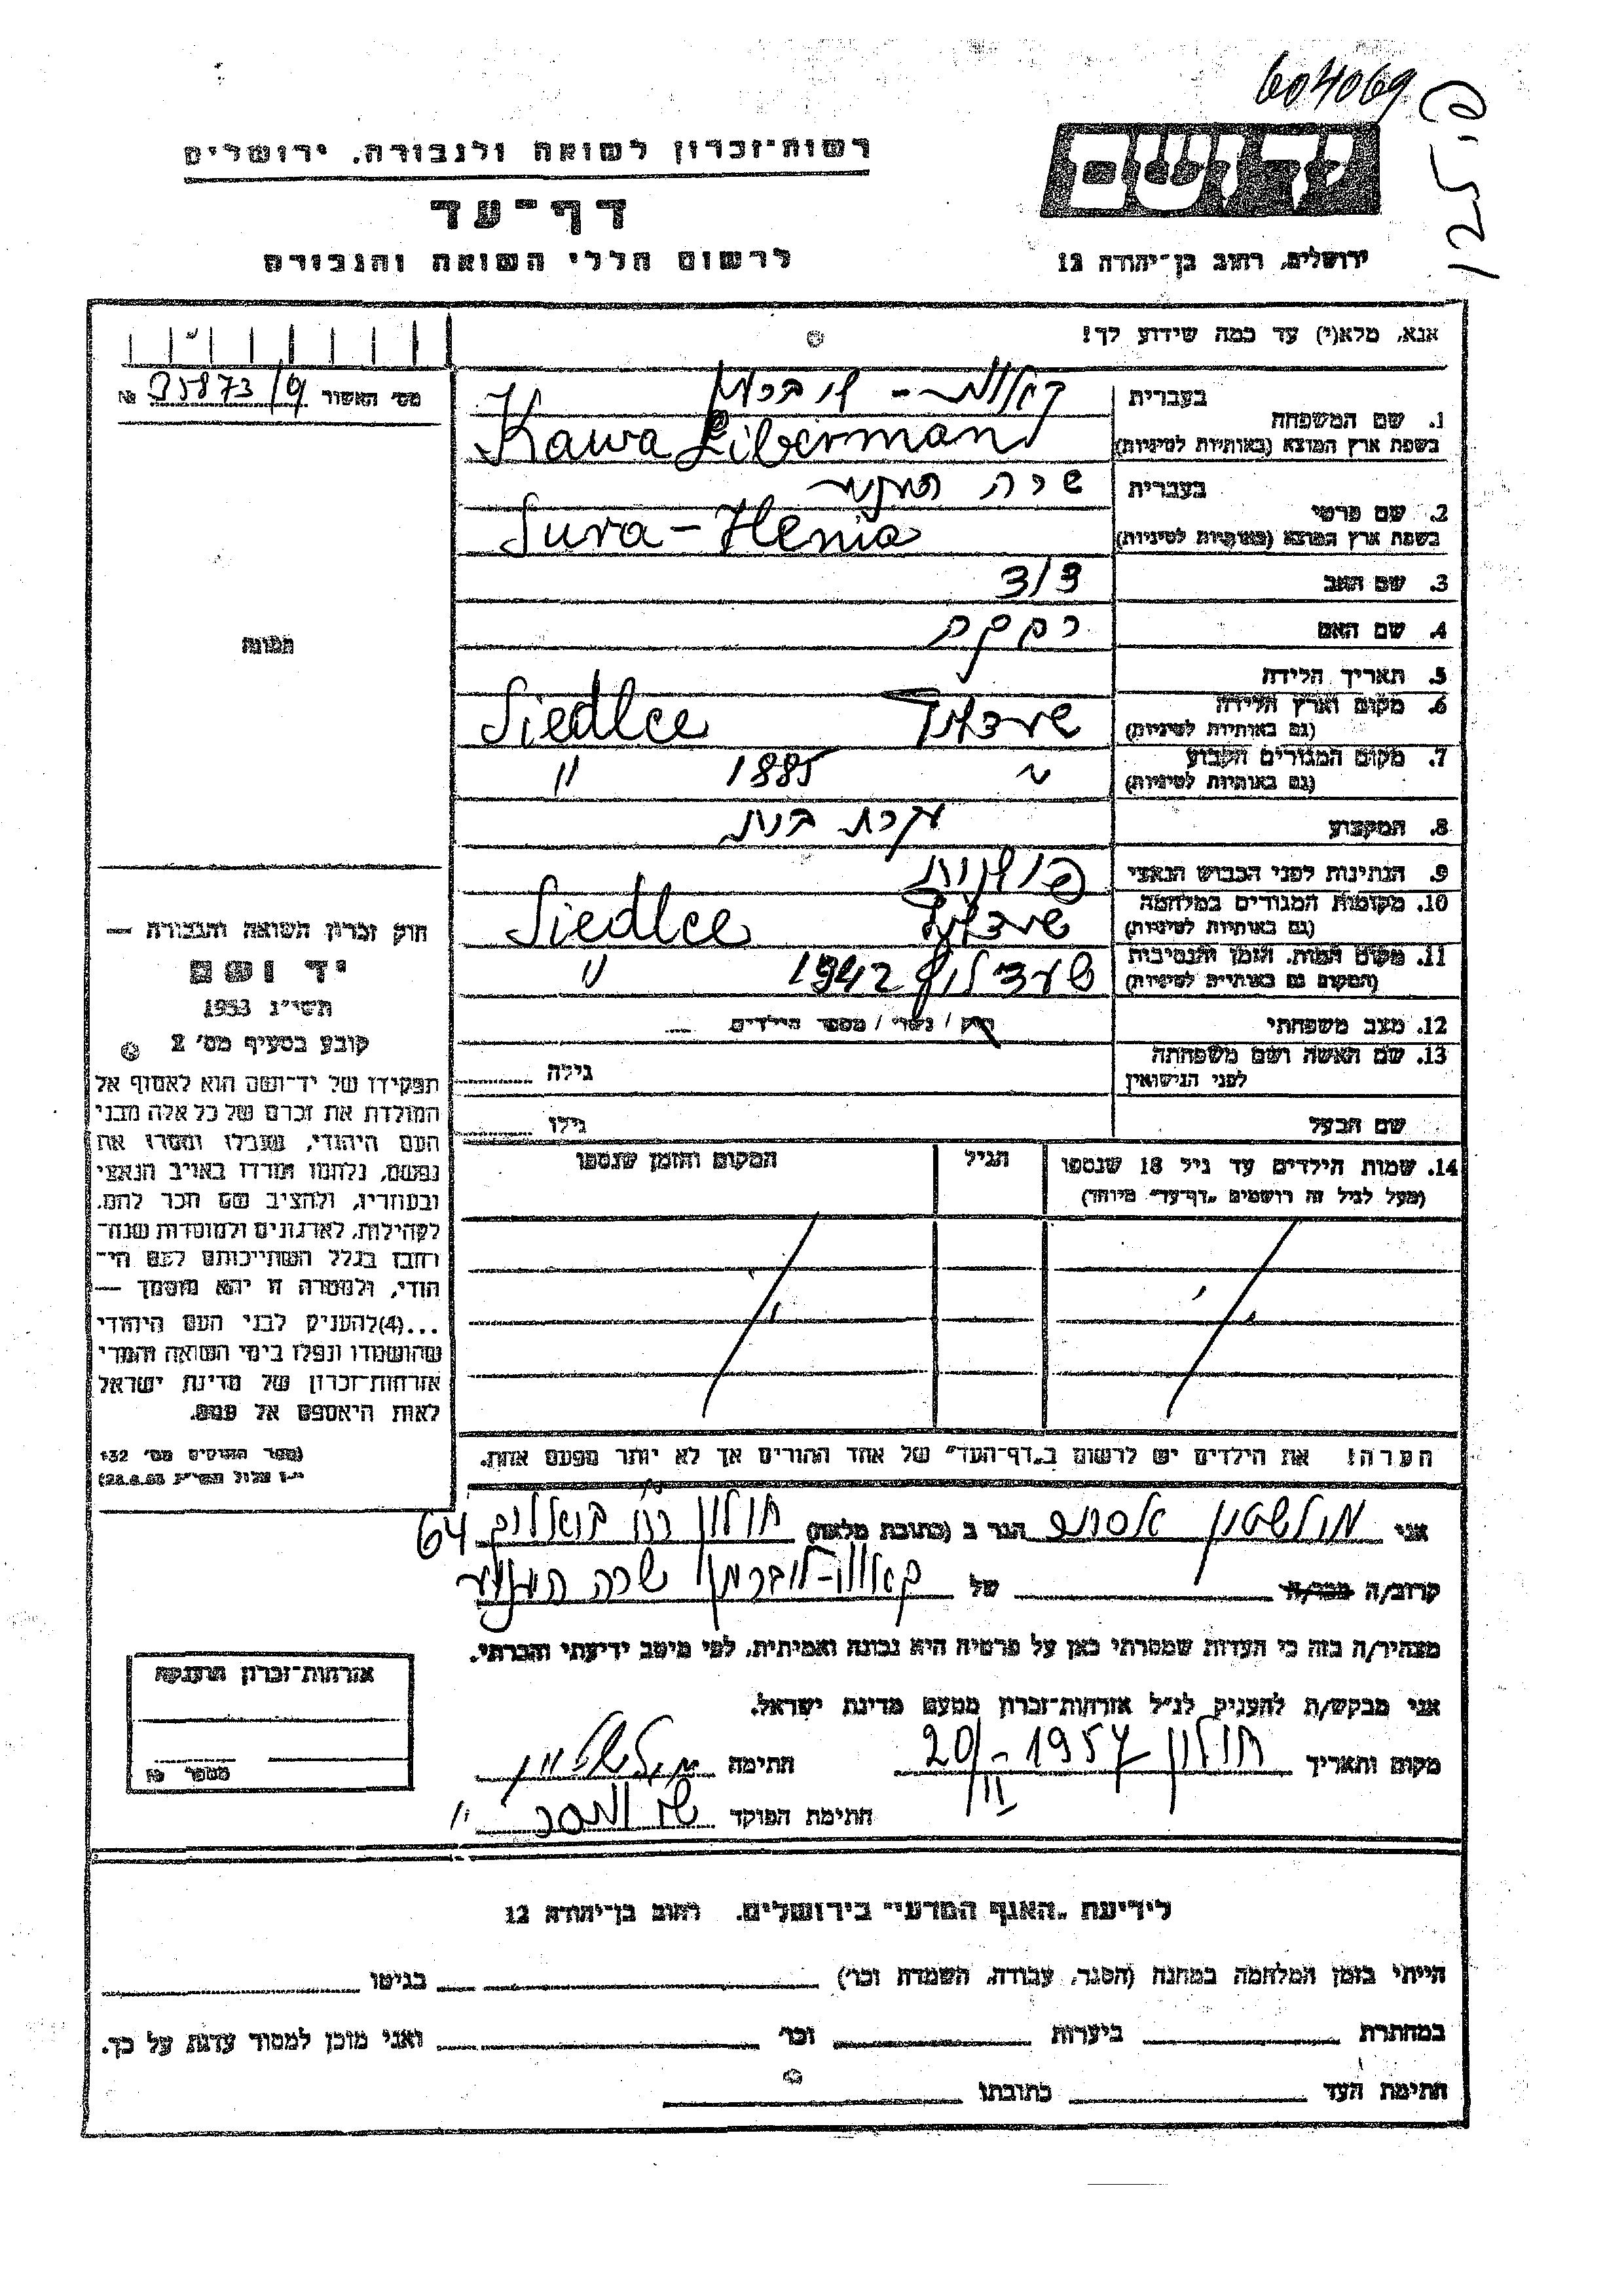 604069
125 פי
רשות־זכרון לשואה ולגבורה, ירושלים
יד ושם
דף־עד
לרשום חללי השואה והגבורה
ירושלים, רחוב בן־יהודה 12
אנא, מלא(י) עד כמה שידוע לך!
מס׳ האשור 95873/
1. שם המשפחה
בעברית
בשפת ארץ המוצא (באותיות לטיניות)
Kawa Liberman
2. שם פרטי
בעברית שרה העניע
בשפת ארץ המוצא (באותיות לטיניות)
Sura-Henia
3. שם האב
4. שם האם רבקה
5. תאריך הלידה
6. מקום וארץ הלידה
(גם באותיות לטיניות)
Siedlce
7. מקום המגורים הקבוע
(גם באותיות לטיניות)
1885 "
8. המקצוע עקרת בית
9. הנתינות לפני הכבוש הנאצי פולנית
10. מקומות המגורים במלחמה
(גם באותיות לטיניות)
Siedlce
11. מקום המות, הזמן והנסיבות
(המקום גם באותיות לטיניות)
1942 "
12. מצב משפחתי
רווק / נשוי / מספר הילדים
13. שם האשה ושם משפחתה
לפני הנישואין
גילה
שם הבעל
גילו
14. שמות הילדים עד גיל 18 שנספו
(מעל לגיל זה רושמים „דף־עד״ מיוחד)
הגיל
המקום והזמן שנספו
הערה! את הילדים יש לרשום ב„דף־העד״ של אחד ההורים אך לא יותר מפעם אחת.
תמונה
חוק זכרון השואה והגבורה —
יד ושם
תשי״ג 1953
קובע בסעיף מס׳ 2
תפקידו של יד־ושם הוא לאסוף אל
המולדת את זכרם של כל אלה מבני
העם היהודי, שנפלו ומסרו את
נפשם, נלחמו ומרדו באויב הנאצי
ובעוזריו, ולהציב שם וזכר להם,
לקהילות, לארגונים ולמוסדות שנח־
רבו בגלל השתייכותם לעם הי־
הודי, ולמטרה זו יהא מוסמך —
...(4) להעניק לבני העם היהודי
שהושמדו ונפלו בימי השואה והמרי
אזרחות־זכרון של מדינת ישראל
לאות היאספם אל עמם.
(ספר החוקים מס׳ 132
י״ז אלול תשי״ג 28.8.53)
אני אסתר הגר ב (כתובת מלאה) חולון 64
קרוב/ה מכר/ה של שרה העניע
מצהיר/ה בזה כי העדות שמסרתי כאן על פרטיה היא נכונה ואמיתית, לפי מיטב ידיעתי והכרתי.
אני מבקש/ת להעניק לנ״ל אזרחות־זכרון מטעם מדינת ישראל.
מקום ותאריך חולון 1957 - 20/II חתימה
חתימת הפוקד
אזרחות־זכרון הוענקה
מספר №
לידיעת „האגף המדעי״ בירושלים. רחוב בן־יהודה 12
הייתי בזמן המלחמה במחנה (הסגר, עבודה, השמדה וכו׳) בגיטו
במחתרת ביערות וכו׳ ואני מוכן למסור עדות על כך.
חתימת העד כתובתו